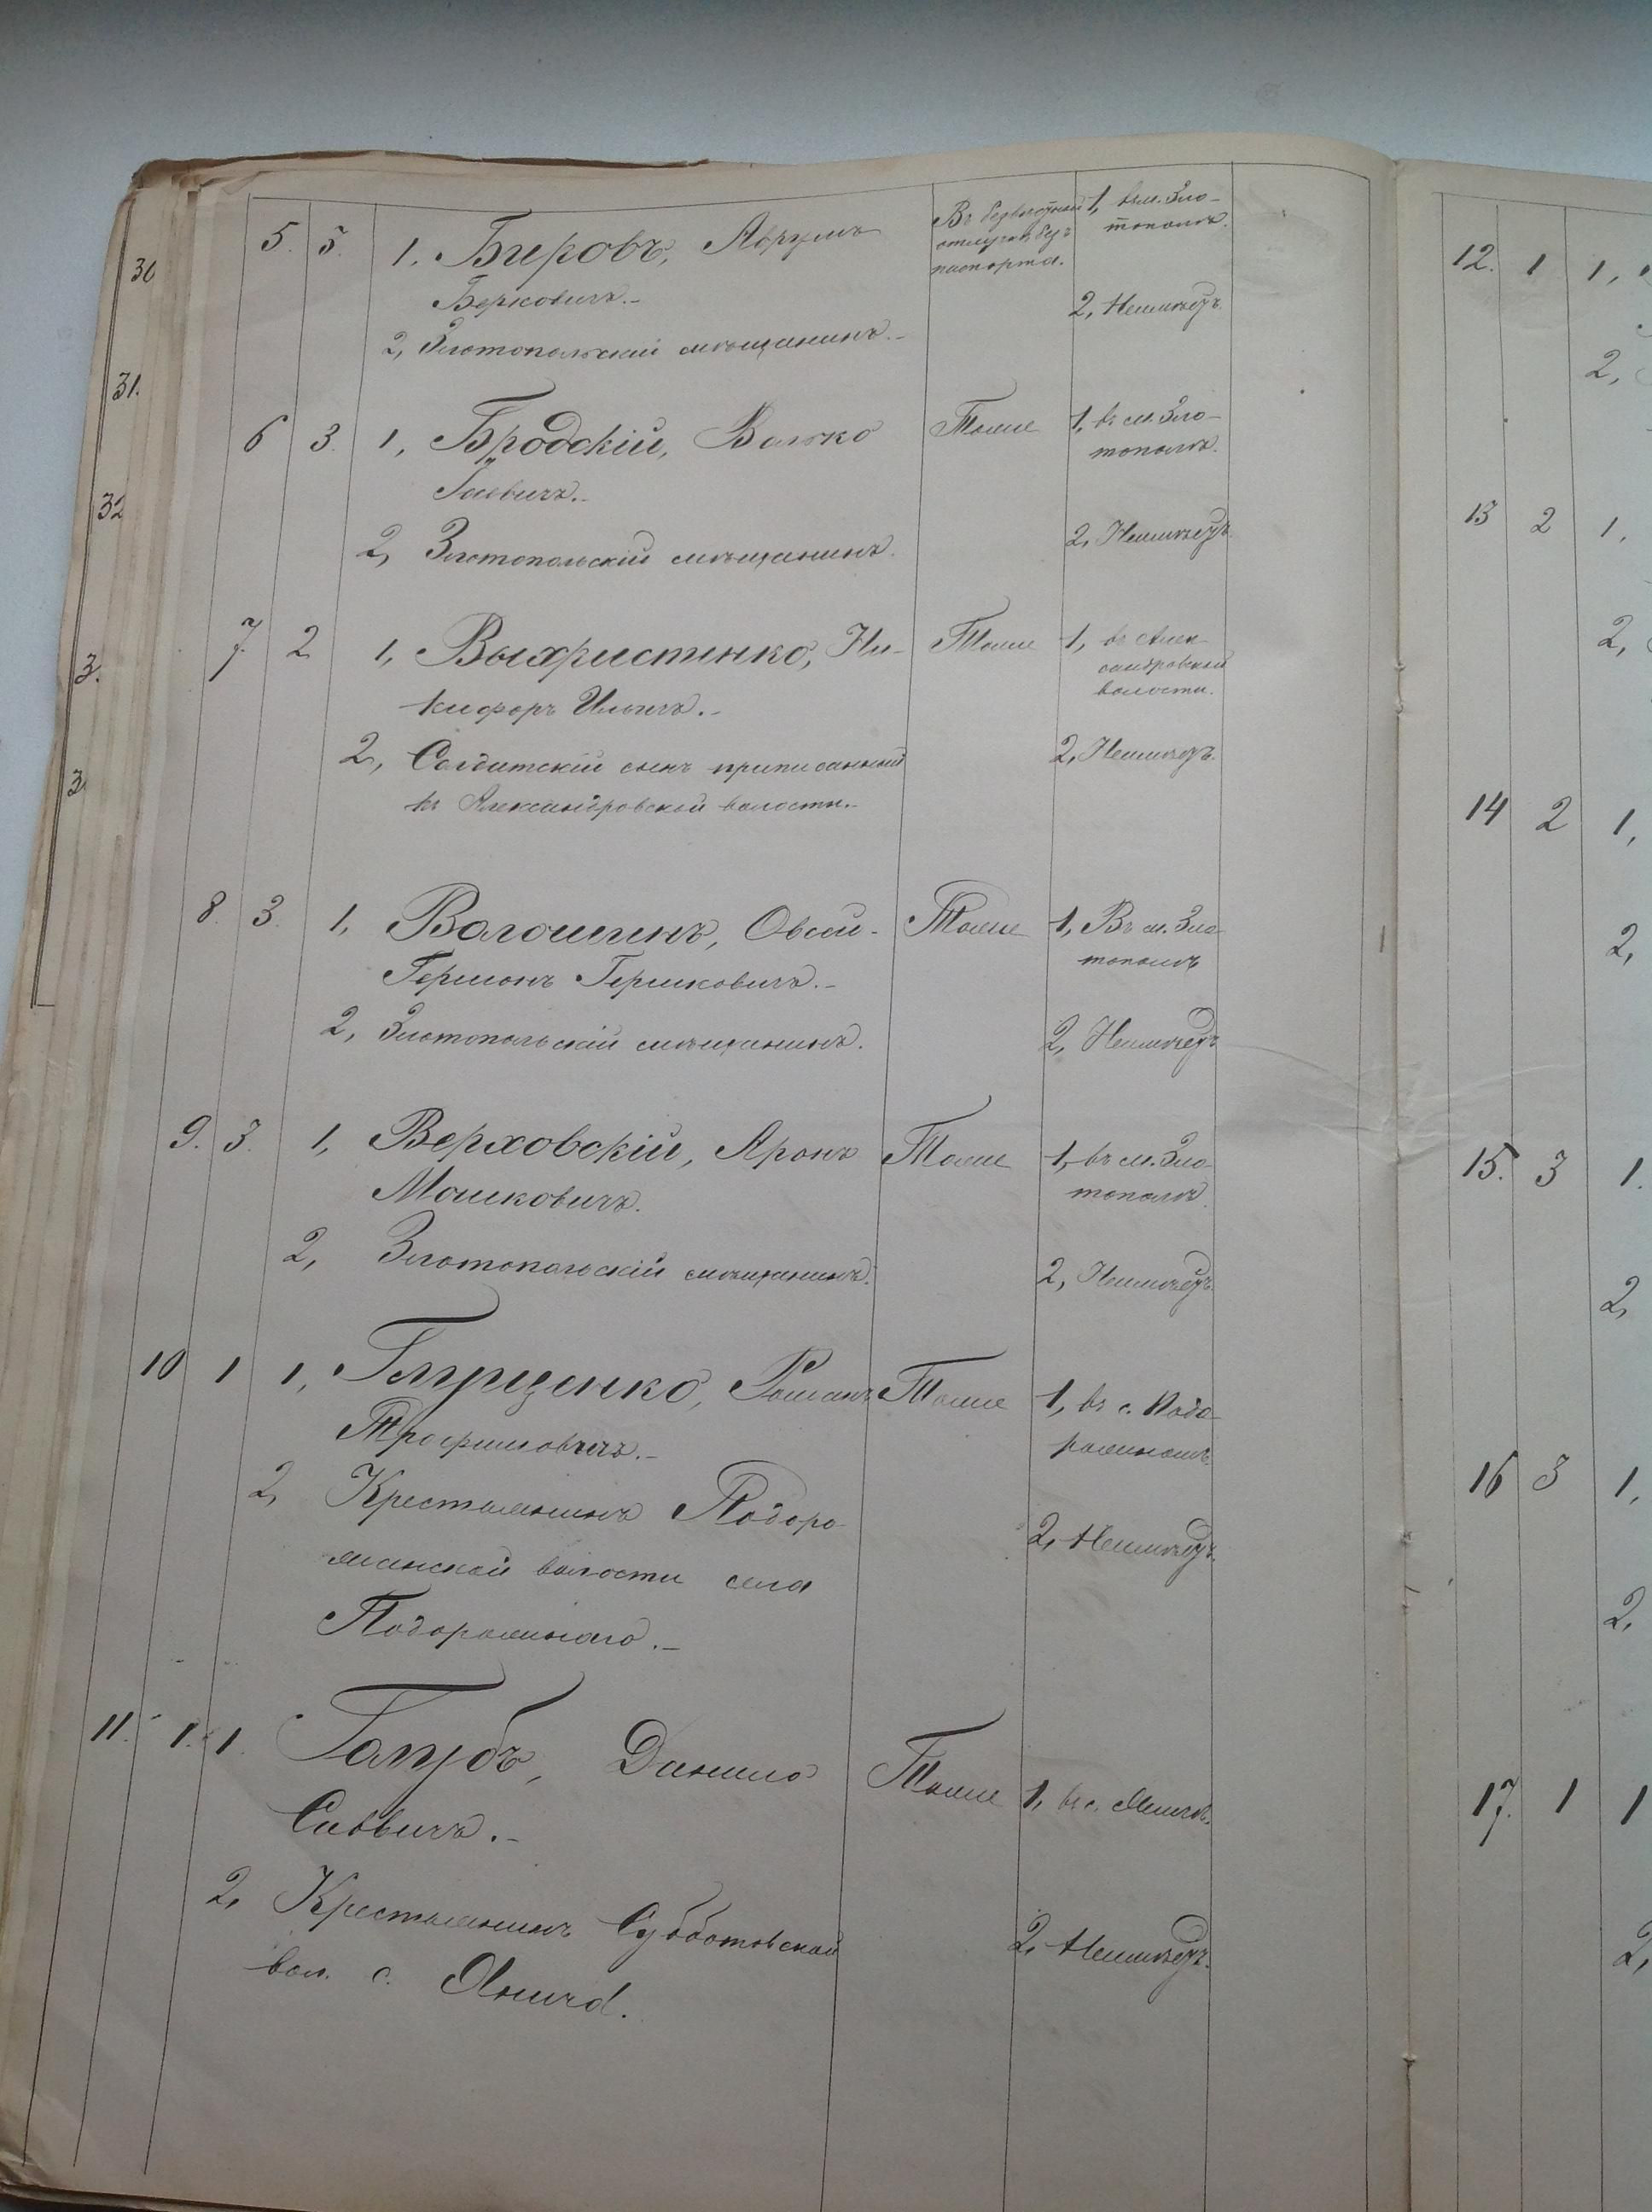 30
31.
32
3.
3
5. 5. 1. Бировъ, Аврумъ
Берковичъ.-
2, Златопольскій мѣщанинъ.-
Въ безвѣстной
отлучкѣ безъ
паспорта.
1, въ м. Зла-
тополѣ.
2, Неимѣетъ.
6 3. 1, Бродскій, Волько
2, Златопольскій мѣщанинъ.
Тоже
1, въ м. Зла-
тополѣ.
2, Неимѣетъ.
7. 2 1, Выхристенко, Ни-
кифоръ Ильичъ.-
2, Солдатскій сынъ приписанный
къ Александровской волости.-
Тоже
1, въ Алек-
сандровской
волости.
2, Неимѣетъ.
8. 3. 1, Волошинъ, Овсей-
Гершонъ Гершковичъ.-
2, Златопольскій мѣщанинъ.
Тоже
1, Въ м. Зла-
тополѣ
2, Неимѣетъ
9. 3. 1, Верховскій, Аронъ
Мошковичъ.
2, Златопольскій мѣщанинъ.
Тоже
1, въ м. Зла-
тополѣ.
2, Неимѣетъ.
10 1 1, Глущенко, Романъ
Трофимовичъ.-
2, Крестьянинъ Подоро-
жанской волости села
Подорожнаго.-
Тоже
1, въ с. Подо-
рожномъ.
2, Неимѣетъ.
11. 1. 1. Голубъ, Данило
Саввичъ.-
2, Крестьянинъ Субботовской
вол. с.
Тоже
1, въ с.
2, Неимѣетъ.
12. 1 1,
2,
13 2 1,
2,
14 2 1,
2,
15. 3 1.
2,
16 3 1,
2,
17. 1 1
2,